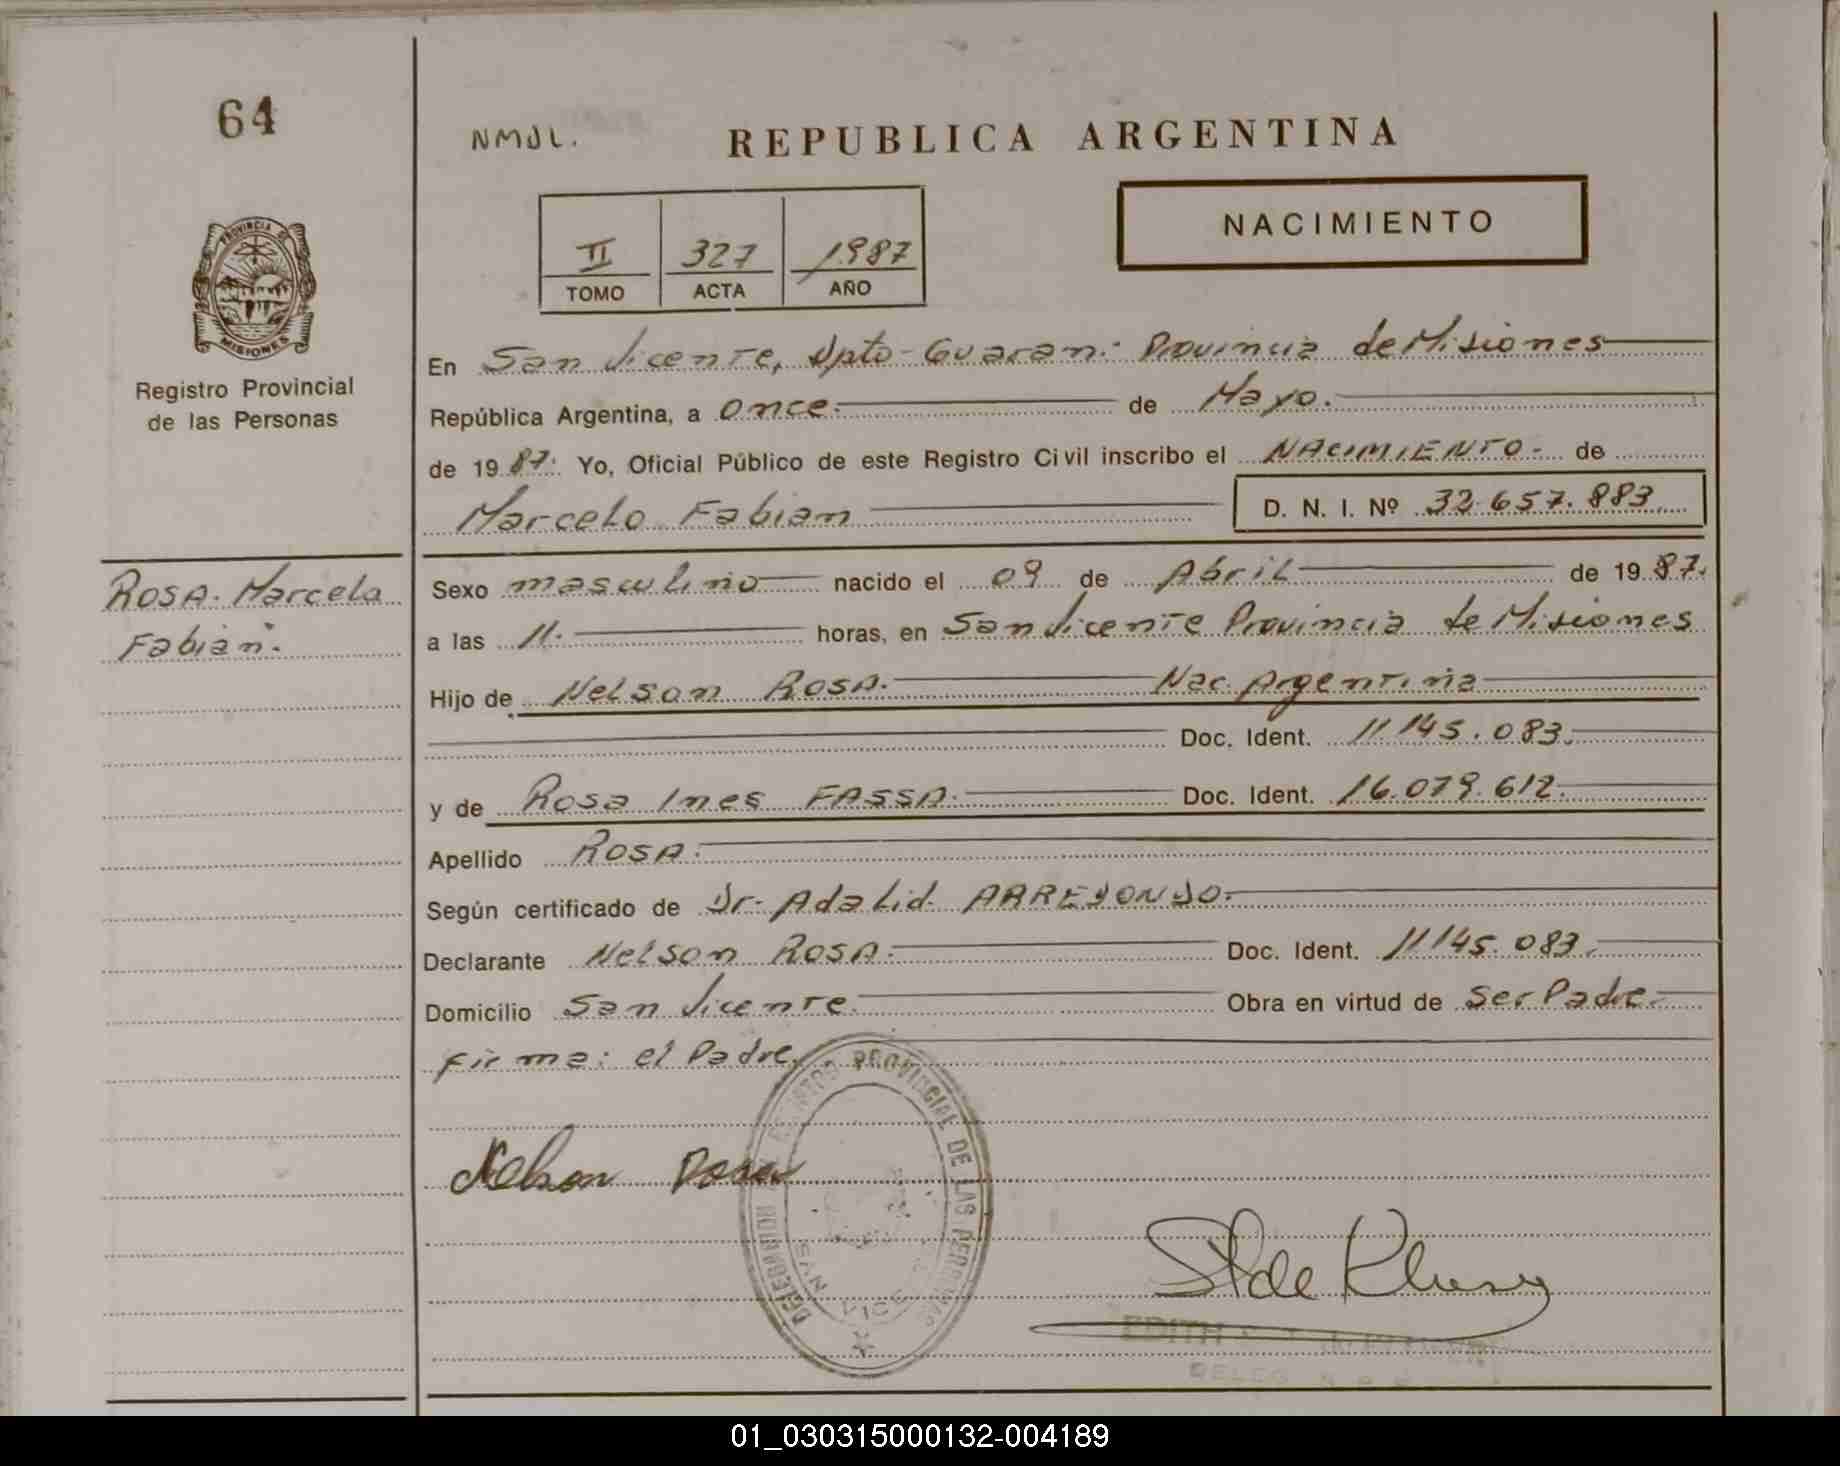 64
NMJL.
REPUBLICA ARGENTINA
NACIMIENTO
II 327 1987
TOMO ACTA AÑO
PROVINCIA DE
MISIONES
Registro Provincial
de las Personas
En San Vicente, Dpto-Guarani- Provincia de Misiones
República Argentina, a once. de Mayo.
de 19 87. Yo, Oficial Público de este Registro Civil inscribo el NACIMIENTO- de
Marcelo Fabian D. N. I. Nº 32.657.883.
ROSA. Marcelo
Fabián.
Sexo masculino nacido el 09 de Abril de 19 87.
a las 11. horas, en San Vicente Provincia de Misiones
Hijo de Nelson ROSA. Nac. Argentina
Doc. Ident. 11.145.083.
y de Rosa Ines FASSA. Doc. Ident. 16.079.612.
Apellido ROSA.
Según certificado de Dr. Adalid. ARREDONDO.
Declarante Nelson ROSA. Doc. Ident. 11.145.083.
Domicilio San Vicente. Obra en virtud de Ser Padre.
firma: el Padre.
Nelson Rosa
REGISTRO PROVINCIAL DE LAS PERSONAS
SAN VICENTE
EDITH
DELEG
01_030315000132-004189